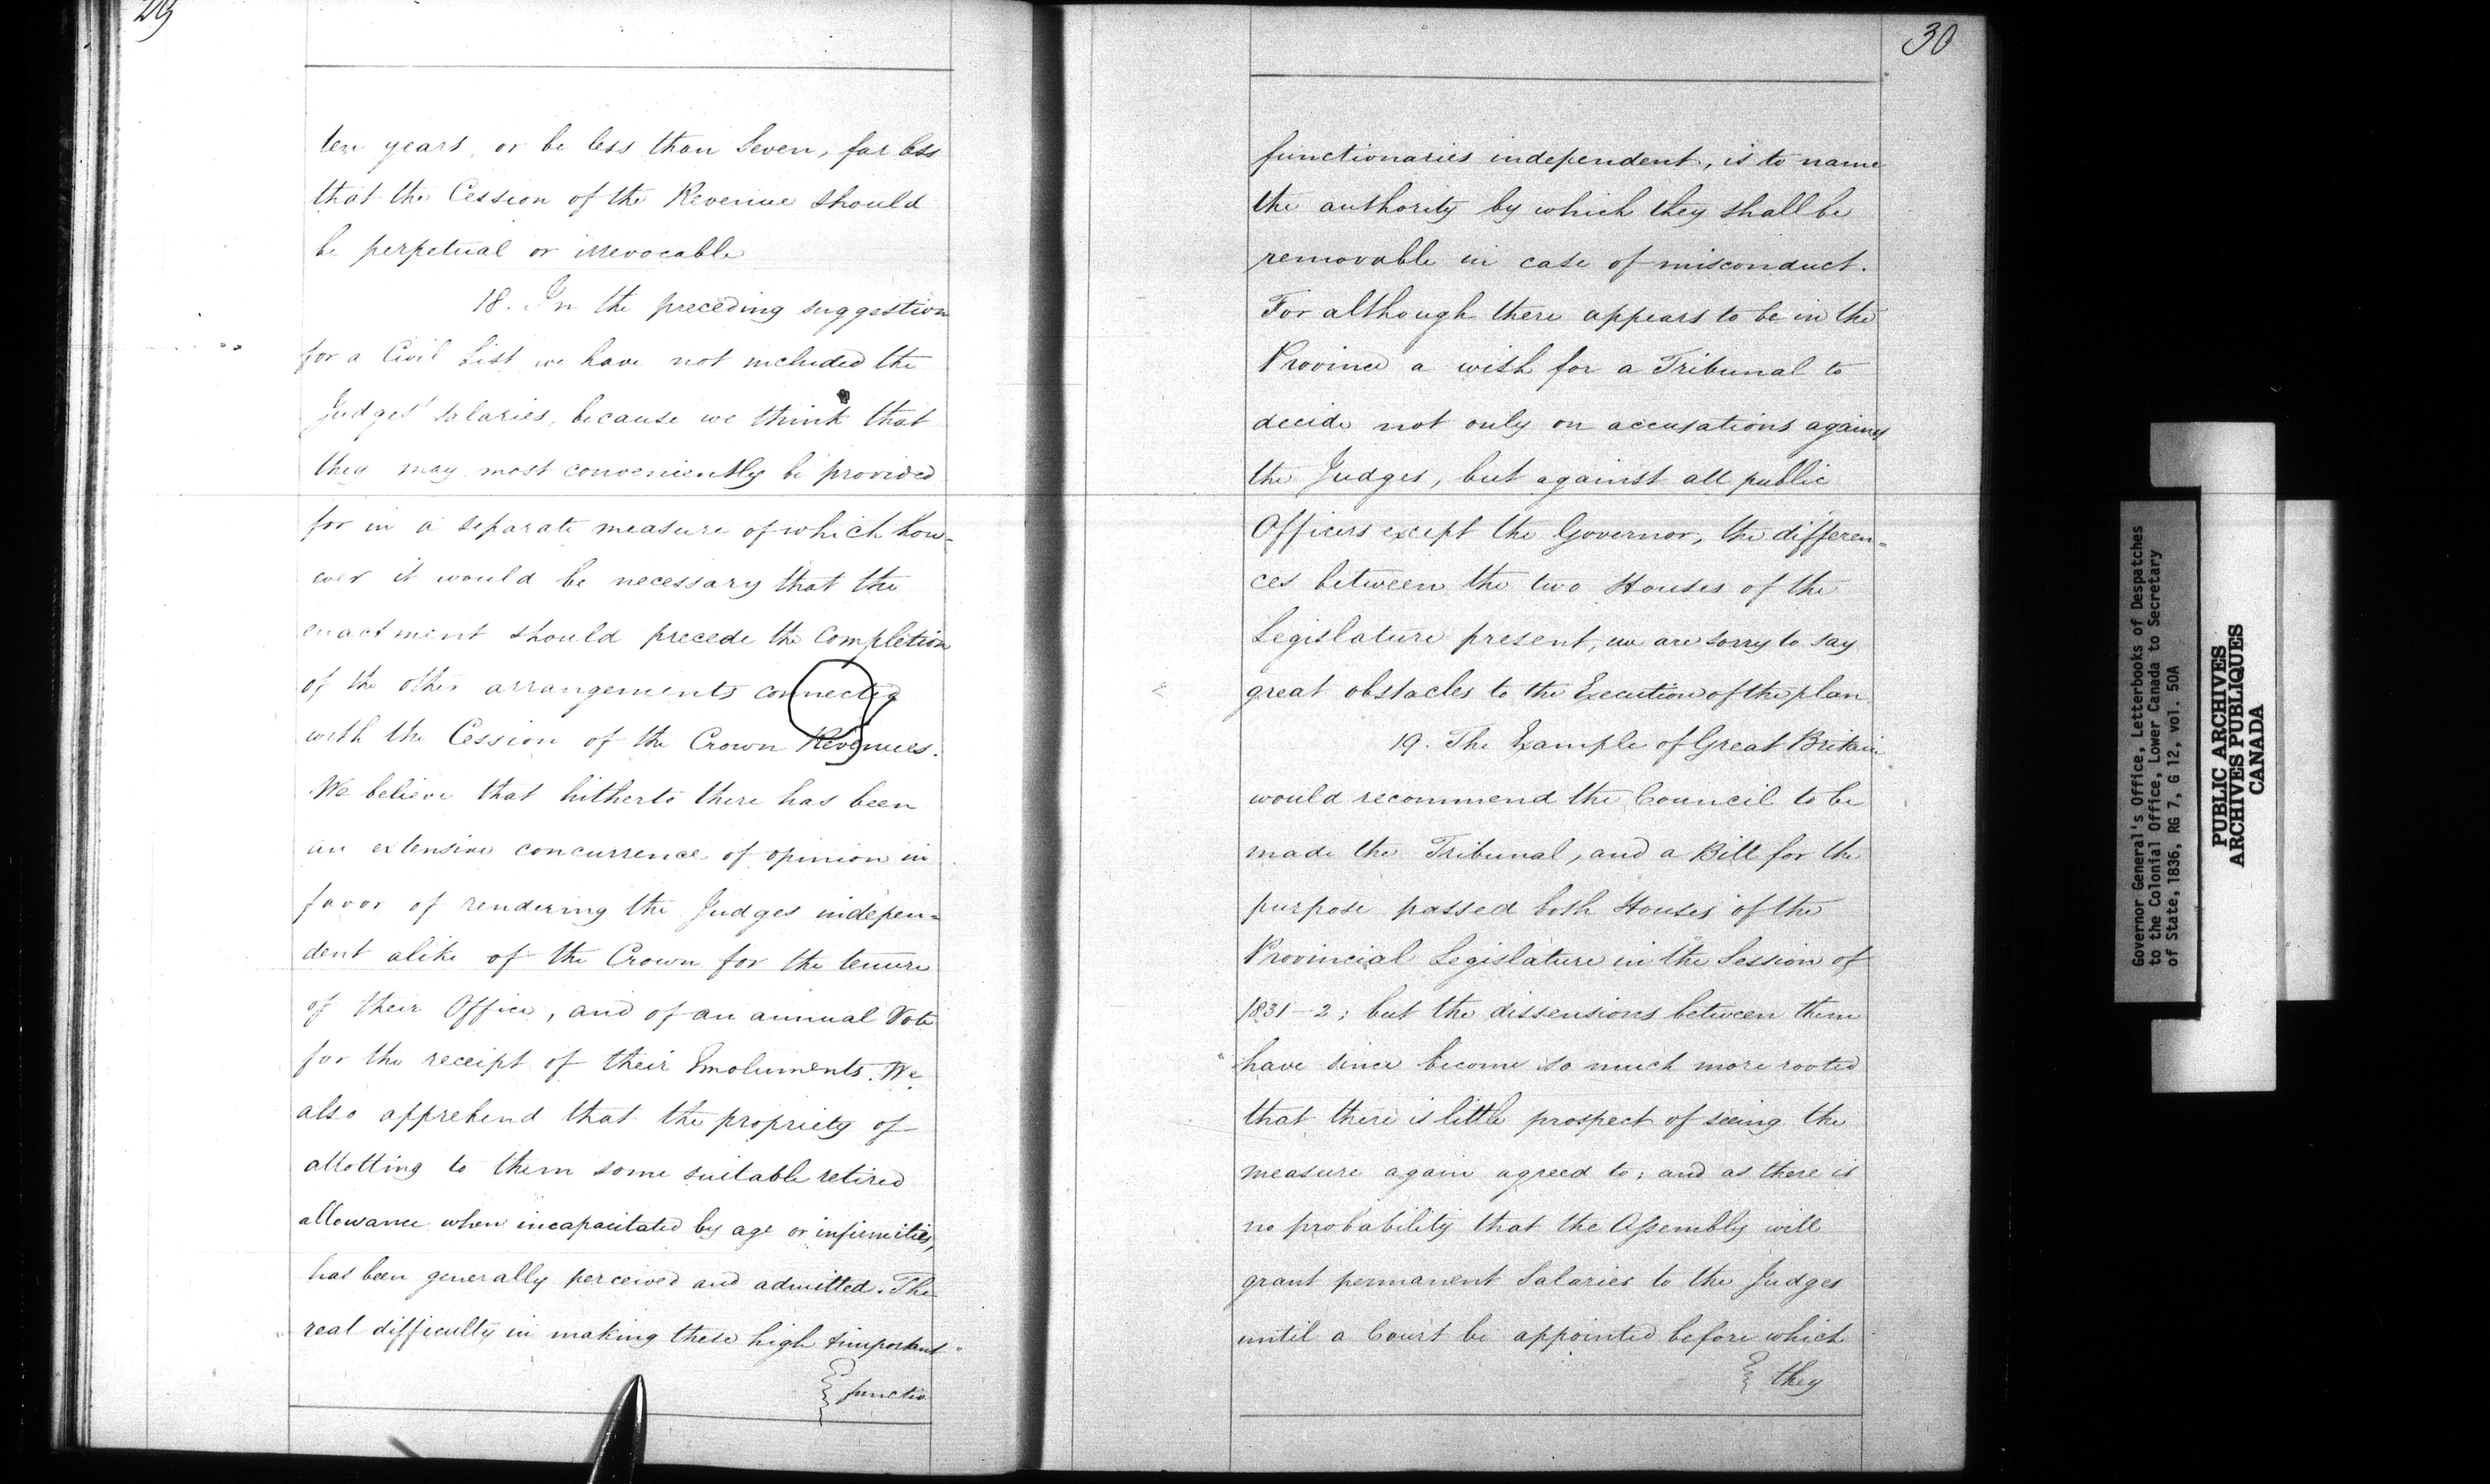 29
ten years, or be less than Seven, far less
that the Cession of the Revenue should
be perpetual or irrevocable
18. In the preceding suggestion
for a Civil List we have not included the
Judges' salaries, because we think that
they may most conveniently be provided
for in a separate measure of which how-
ever it would be necessary that the
enactment should precede the Completion
of the other arrangements connected
with the Cession of the Crown Revenues.
We believe that hitherto there has been
an extensive concurrence of opinion in
favor of rendering the Judges indepen=
dent alike of the Crown for the tenure
of their Office, and of an annual Vote
for the receipt of their Emoluments. We
also apprehend that the propriety of
allotting to them some suitable retired
allowance when incapacitated by age or infirmities,
has been generally perceived and admitted. The
real difficulty in making these high & important
functio
30
functionaries independent, is to name
the authority by which they shall be
removable in case of misconduct.
For although there appears to be in the
Province a wish for a Tribunal to
decide not only on accusations against
the Judges, but against all public
Officers except the Governor, the differen=
ces between the two Houses of the
Legislature present, we are sorry to say
great obstacles to the Execution of the plan.
19. The Example of Great Britain
would recommend the Council to be
made the Tribunal, and a Bill for the
purpose passed both Houses of the
Provincial Legislature in the Session of
1831-2; but the dissensions between them
have since become so much more rooted
that there is little prospect of seeing the
measure again agreed to; and as there is
no probability that the Assembly will
grant permanent Salaries to the Judges
until a Court be appointed before which
they
Governor General's Office, Letterbooks of Despatches
to the Colonial Office, Lower Canada to Secretary
of State, 1836, RG 7, G 12, vol. 50A
PUBLIC ARCHIVES
ARCHIVES PUBLIQUES
CANADA